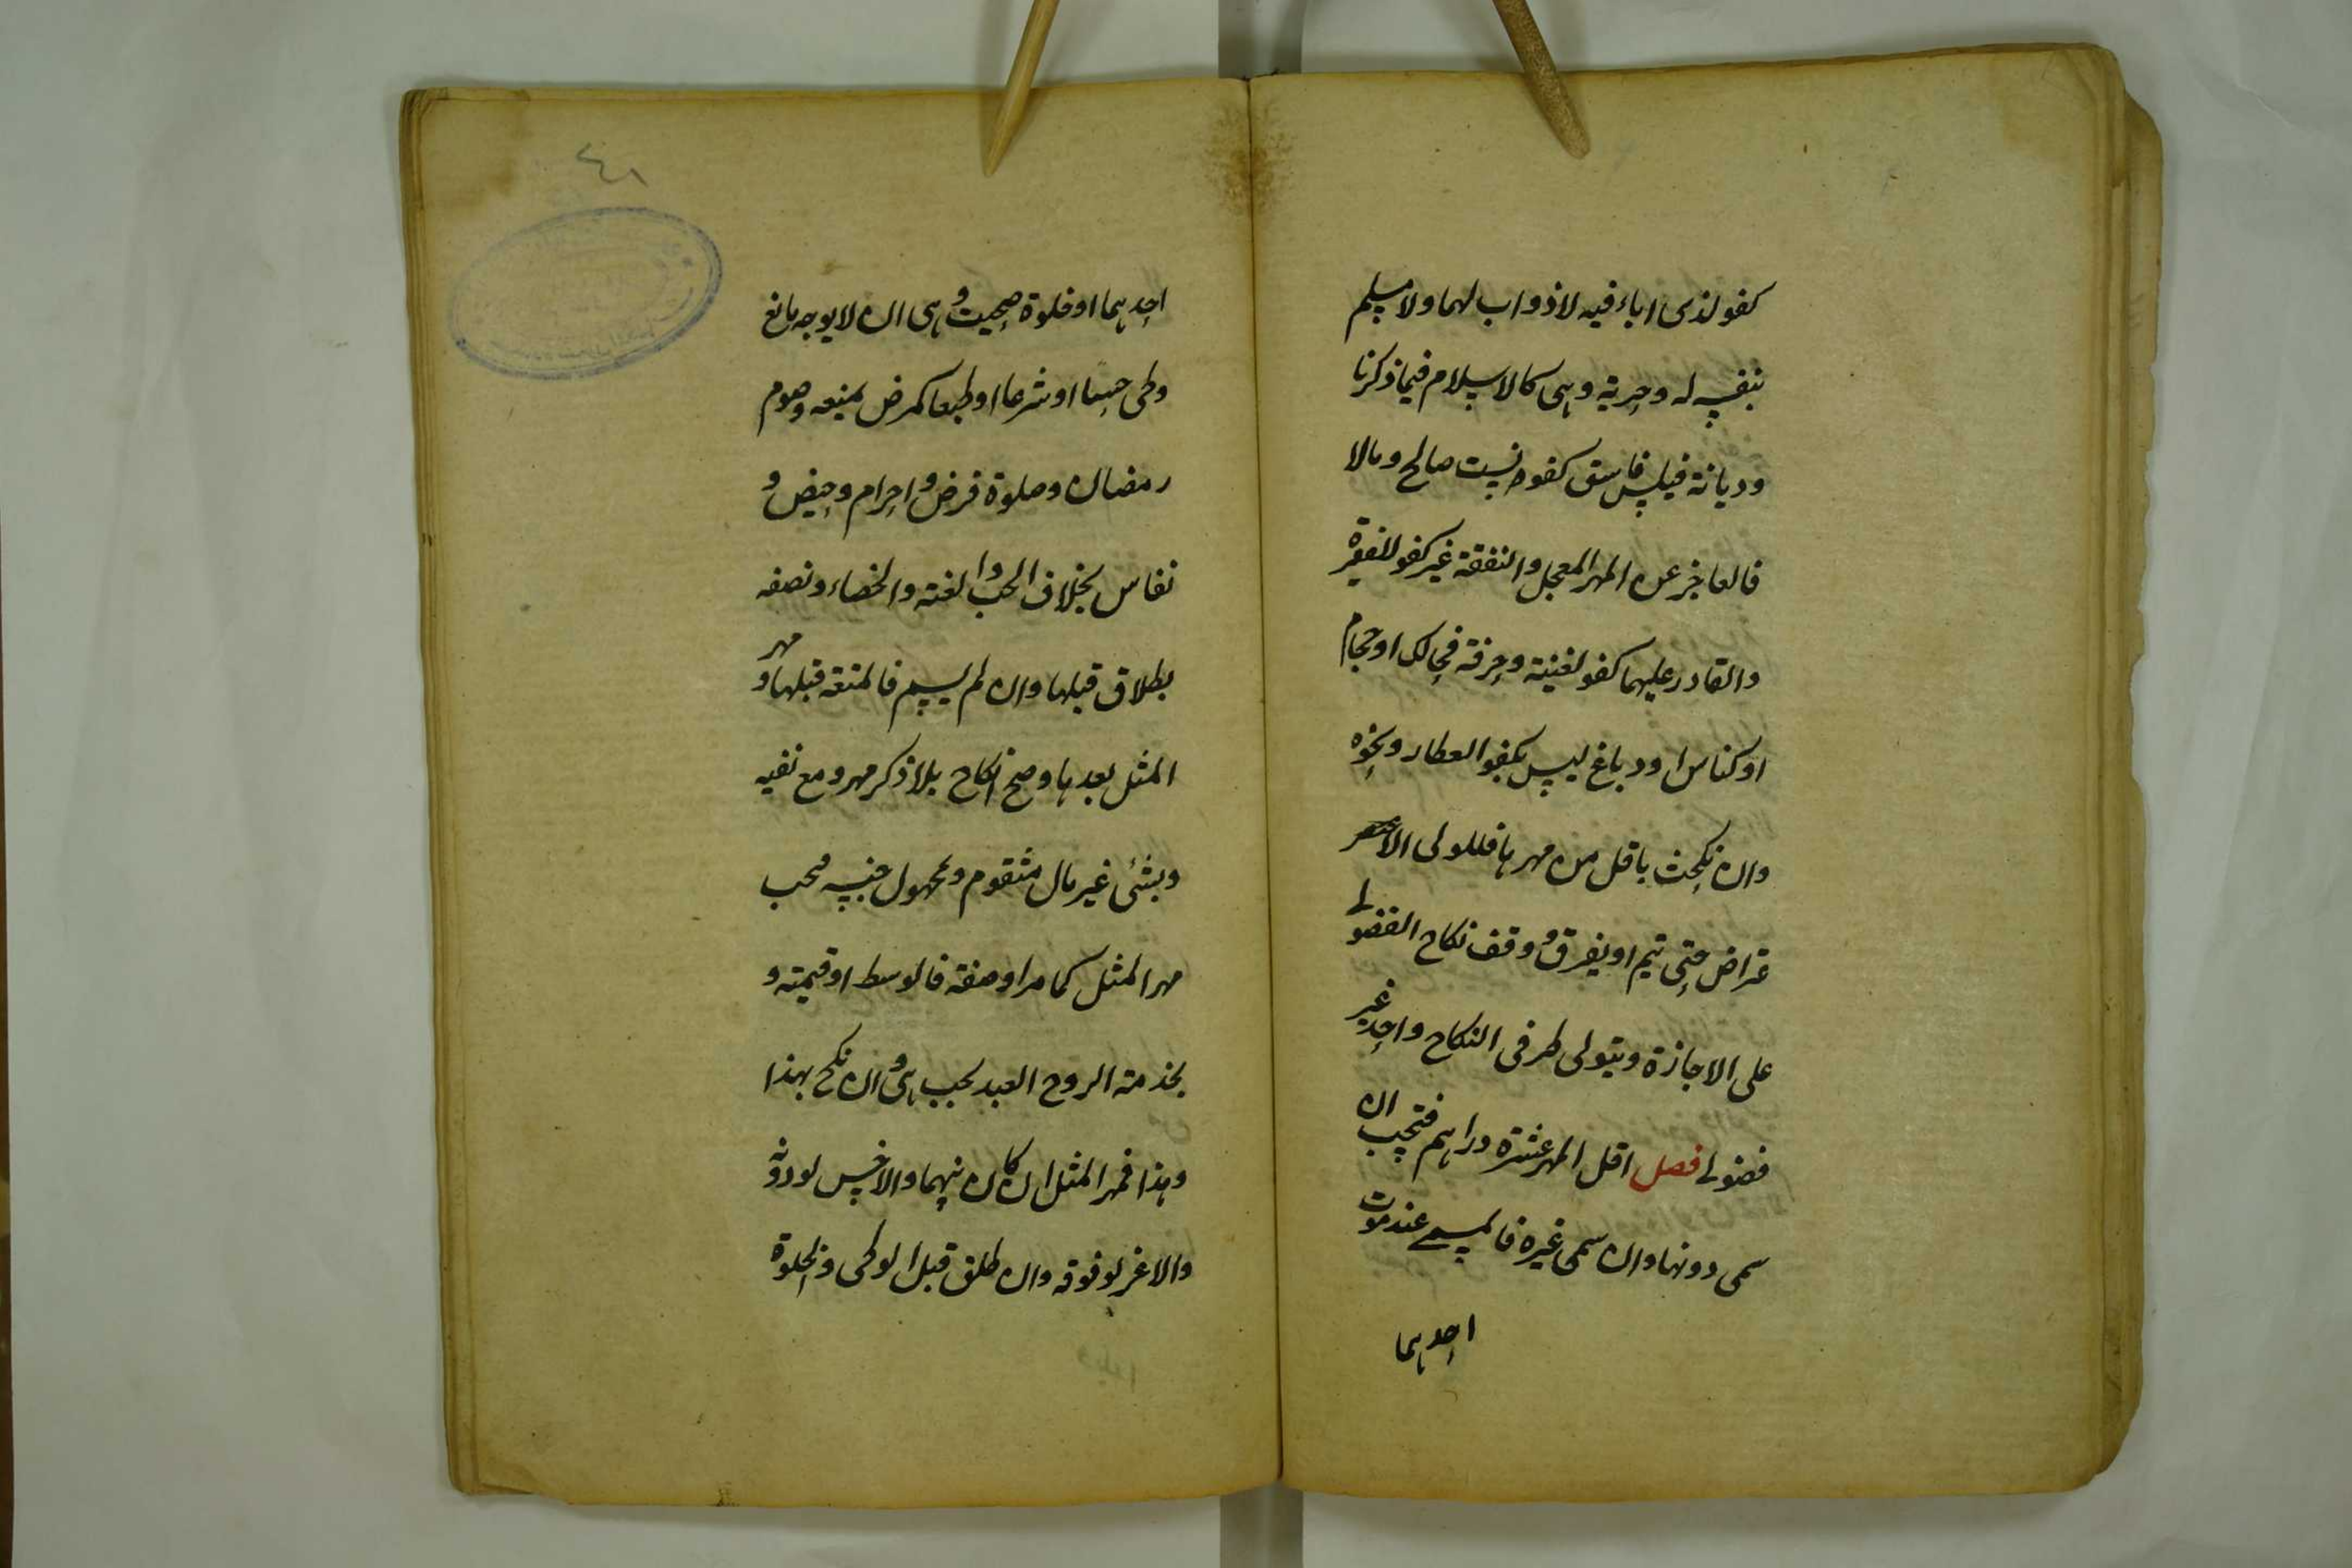 كفو لذى اباء فيه لاذو اب لهما ولا مسلم
بنفسه له وحرية وهى كالاسلام فيما ذكرنا
وديانة فليس فاسق كفو بنت صالح ومالا
فالعاجز عن المهر المعجل والنفقة غير كفو للفقيرة
والقادر عليهما كفو لغنية وحرفة فحالك او حجام
او كناس او دباغ ليس بكفو العطار ونحوه
وان نكحت باقل من مهرها فللولى الا
عتراض حتى تيم او يفرق ووقف نكاح الفضولى
على الاجازة ويتولى طرفى النكاح واحد غير
فضولى فصل اقل المهر عشرة دراهم فتجب ان
سمى دونها وان سمى غيره فالمسمى عند موت
احدهما
٤١
احدهما او خلوة صحيت وهى ان لا يوجد مانع
وطى حسا او شرعا او طبعا كمرض يمنعه وصوم
رمضان وصلوة فرض واحرام وحيض و
نفاس بخلاف الجب والعنة والخصاء ونصفه
بطلاق قبلها وان لم يسم فالمتعة قبلها ومهر
المثل بعدها وصح النكاح بلا ذكر مهر ومع نفيه
وبشئ غير مال متقوم ومجهول جنسه فجب
مهر المثل كما مر او صفة فالوسط او قيمته و
بخدمة الزوج العبد لجب هى وان نكح بهذا
وبهذا فمهر المثل ان كان بينهما والاخس لو دونه
والاعز لو فوقه وان طلق قبل الوطى والخلوة